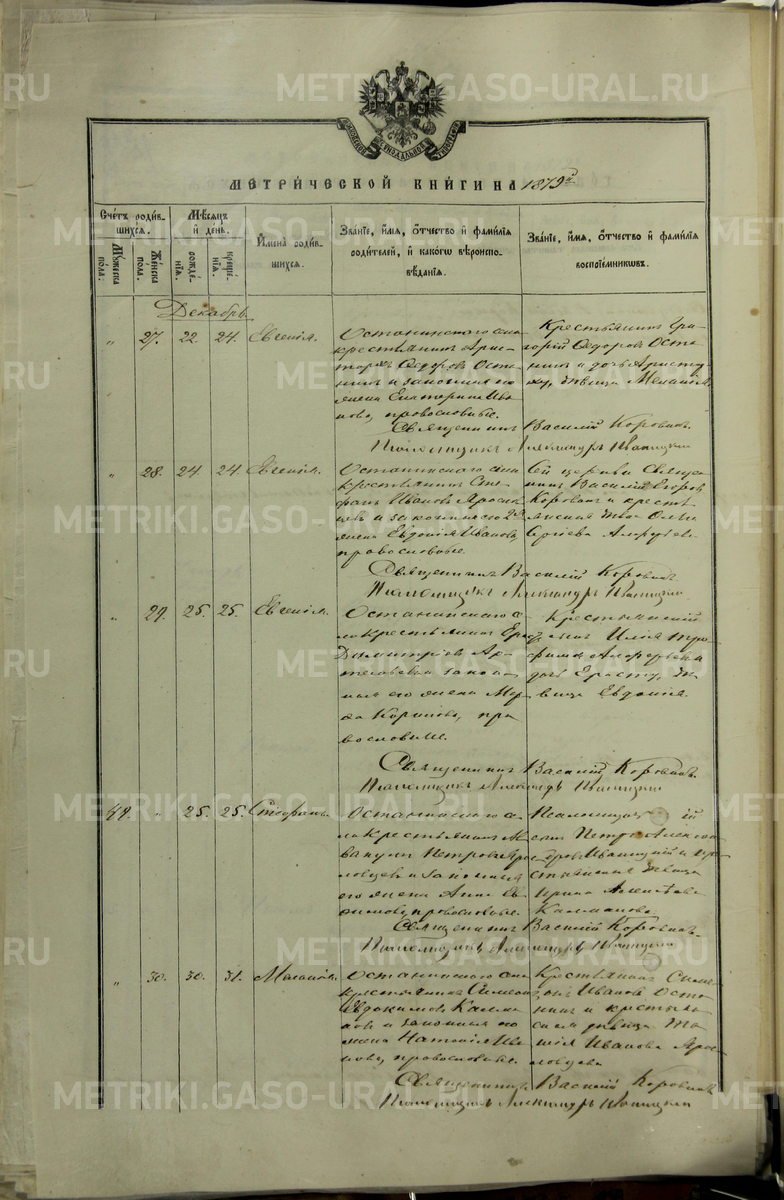 МЕТРИ́ЧЕСКОЙ КНИ́ГИ НА 1879й
Сче́тъ роди́в-
шихся.
Му́жеска
по́ла.
Же́нска
по́ла.
Мѣ́сяцъ
и҆ де́нь.
рожде́-
нїѧ.
креще́-
нїѧ.
И҆мена̀ роди́в-
шихся.
Зва́нїе, и҆́мѧ, ѻ҆́тчество и҆ фами́лїѧ
роди́телей, и҆ како́гѡ вѣроиспо-
вѣ́данїѧ.
Зва́нїе, и҆́мѧ, ѻ҆́тчество и҆ фами́лїѧ
воспрїе́мникѡвъ.
Декабрь
" 27. 22. 24. Евгенія.
Останинского села
крестьянинъ Арис-
тархъ Ѳедоровъ Оста-
нинъ и законная его
жена Екатерина Ива-
нова, православные.
Крестьянинъ Гри-
горій Ѳедоровъ Оста-
нинъ и дочь Аристар-
ха, дѣвица Меланія.
Священникъ Василій Коровинъ
Псаломщикъ Александръ Иваницкій
" 28. 24. 24. Евгенія.
Останинского села
крестьянинъ Сте-
фанъ Ивановъ Яросла-
цевъ и законная его
жена Евдокія Иванова,
православные.
Сей церкви Священ-
никъ Василій Егоровъ
Коровинъ и кресть-
янская
Священникъ Василій Коровинъ
Псаломщикъ Александръ Иваницкій
" 29. 25. 25. Евгенія.
Останинского се-
ла крестьянинъ Ерастъ
Димитріевъ
и закон-
ная его жена Мар-
ѳа пра-
вославные.
Крестьянскій
сынъ Илія Тро-
фимовъ и
дочь Ерасту, дѣ-
вица Евдокія.
Священникъ Василій Коровинъ
Псаломщикъ Александръ Иваницкій
49. " 25. 25. Стефанъ.
Останинского се-
ла крестьянинъ И-
вакумъ Петровъ Ярос-
лавцевъ и законная
его жена Анна Ев-
фимова, православные.
Псаломщическій
сынъ Петръ Алексан-
дровъ Иваницкій и кре-
стьянская дѣвица
Ирина Алексѣева
Калмакова
Священникъ Василій Коровинъ
Псаломщикъ Александръ Иваницкій
" 30. 30. 31. Меланія.
Останинского села
крестьянинъ Симеонъ
Евдокимовъ Калма-
ковъ и законная его
жена Наталія Ива-
нова, православные.
Крестьянинъ Симе-
онъ Ивановъ Оста-
нинъ и крестьян-
ская дѣвица Та-
исія Иванова Ярос-
лавцева
Священникъ Василій Коровинъ
Псаломщикъ Александръ Иваницкій
METRIKI.GASO-URAL.RU